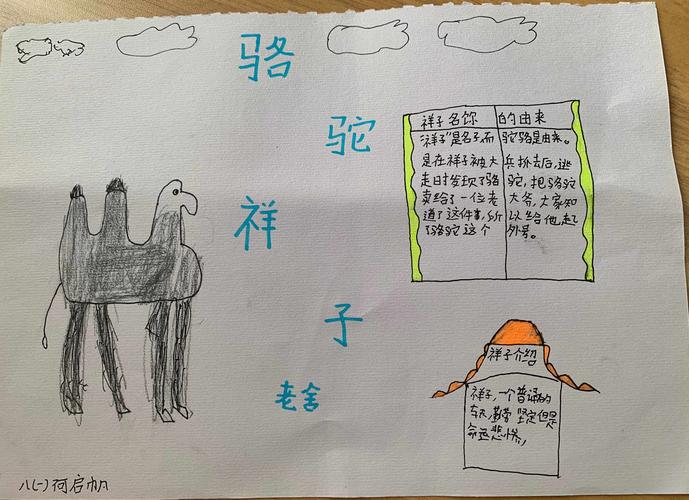 骆
驼
祥
子
老舍
祥子名称的由来
"祥子"是名子,而驼骆是由来。
是在祥子被大兵抓去后,逃
走时发现了骆驼,把骆驼
卖给了一位老大爷,大家知
道了这件事,所以给他起
了骆驼这个外号。
祥子介绍
祥子,一个普通的
车夫,勤劳 坚定但是
命运悲惨,
八(一)何启帆